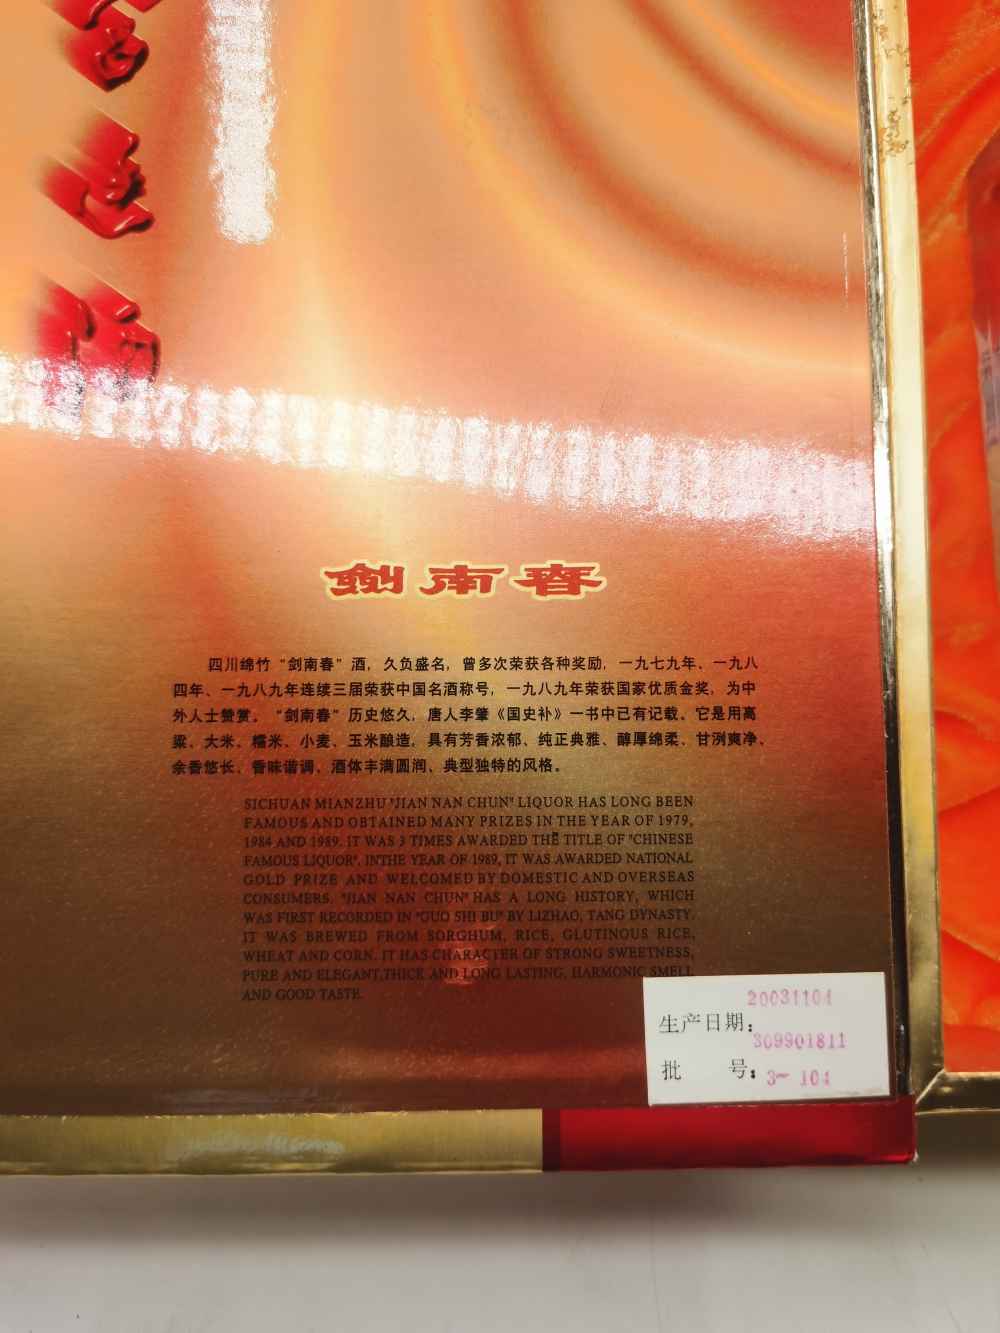 剑南春
四川绵竹“剑南春”酒，久负盛名，曾多次荣获各种奖励，一九七九年、一九八
四年、一九八九年连续三届荣获中国名酒称号，一九八九年荣获国家优质金奖，为中
外人士赞赏。“剑南春”历史悠久，唐人李肇《国史补》一书中已有记载。它是用高
粱、大米、糯米、小麦、玉米酿造，具有芳香浓郁、纯正典雅、醇厚绵柔、甘洌爽净、
余香悠长、香味谐调、酒体丰满圆润、典型独特的风格。
SICHUAN MIANZHU "JIAN NAN CHUN" LIQUOR HAS LONG BEEN
FAMOUS AND OBTAINED MANY PRIZES IN THE YEAR OF 1979,
1984 AND 1989. IT WAS 3 TIMES AWARDED THE TITLE OF "CHINESE
FAMOUS LIQUOR". INTHE YEAR OF 1989, IT WAS AWARDED NATIONAL
GOLD PRIZE AND WELCOMED BY DOMESTIC AND OVERSEAS
CONSUMERS. "JIAN NAN CHUN" HAS A LONG HISTORY, WHICH
WAS FIRST RECORDED IN "GUO SHI BU" BY LIZHAO, TANG DYNASTY.
IT WAS BREWED FROM SORGHUM, RICE, GLUTINOUS RICE,
WHEAT AND CORN. IT HAS CHARACTER OF STRONG SWEETNESS,
PURE AND ELEGANT,THICK AND LONG LASTING, HARMONIC SMELL
AND GOOD TASTE.
20031104
生产日期：
309901811
批 号：3- 104